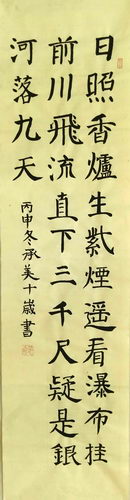 日照香爐生紫煙遥看瀑布挂
前川飛流直下三千尺疑是銀
河落九天
丙申冬承美十歲書